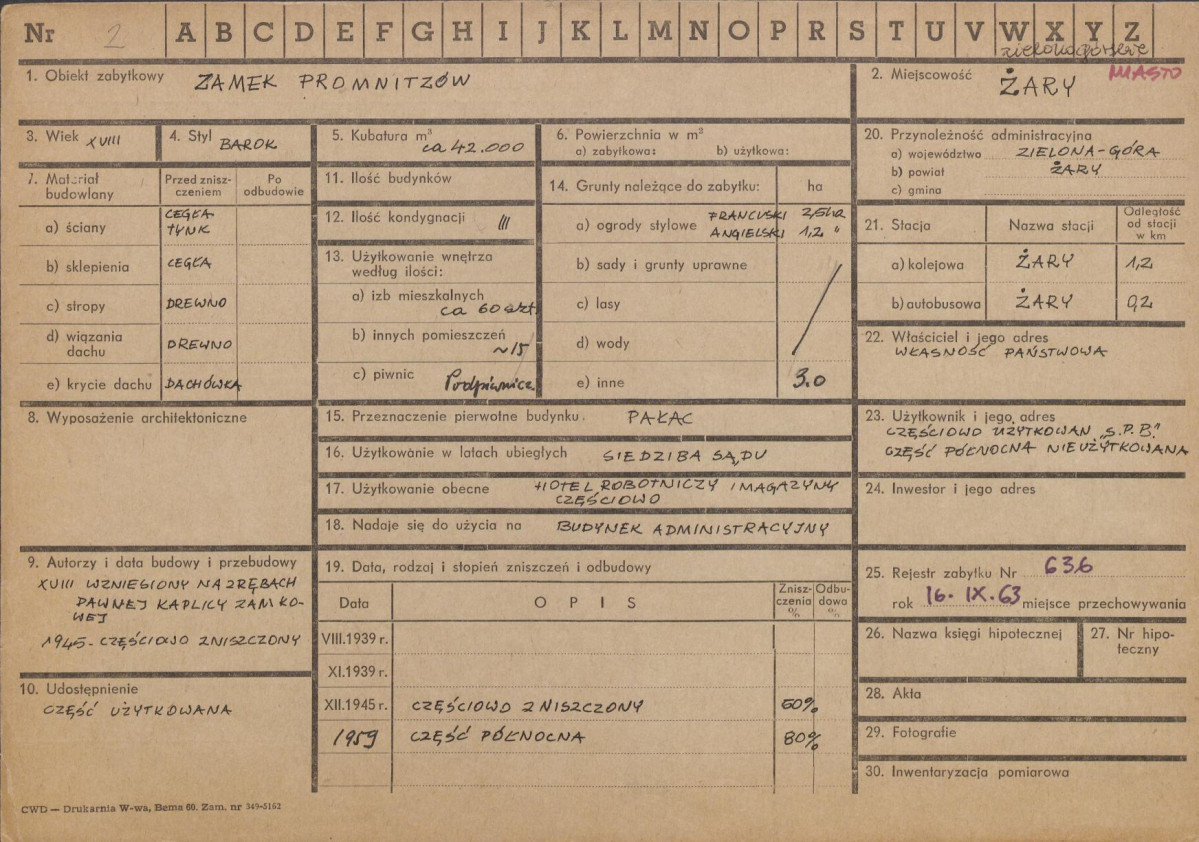 Nr 2 A B C D E F G H I J K L M N O P R S T U V W X Y Z
zielonogórskie
1. Obiekt zabytkowy ZAMEK PROMNITZÓW
2. Miejscowość ŻARY MIASTO
3. Wiek XVIII
4. Styl BAROK
5. Kubatura m³ ca 42.000
6. Powierzchnia w m²
a) zabytkowa: b) użytkowa:
7. Materiał budowlany
Przed znisz-
czeniem
Po
odbudowie
a) ściany CEGŁA
TYNK
b) sklepienia CEGŁA
c) stropy DREWNO
d) wiązania
dachu DREWNO
e) krycie dachu DACHÓWKA
8. Wyposażenie architektoniczne
9. Autorzy i data budowy i przebudowy
XVIII WZNIESIONY NA ZRĘBACH
DAWNEJ KAPLICY ZAMKO-
WEJ
1945 - CZĘŚCIOWO ZNISZCZONY
10. Udostępnienie
CZĘŚĆ UŻYTKOWANA
11. Ilość budynków
12. Ilość kondygnacji III
13. Użytkowanie wnętrza
według ilości:
a) izb mieszkalnych
ca 60 szt.
b) innych pomieszczeń
~15
c) piwnic Podpiwnicz.
14. Grunty należące do zabytku: ha
a) ogrody stylowe FRANCUSKI 2,5 ha
ANGIELSKI 1,2 "
b) sady i grunty uprawne
c) lasy
d) wody
e) inne 3.0
15. Przeznaczenie pierwotne budynku. PAŁAC
16. Użytkowanie w latach ubiegłych SIEDZIBA SĄDU
17. Użytkowanie obecne HOTEL ROBOTNICZY I MAGAZYNY
CZĘŚCIOWO
18. Nadaje się do użycia na BUDYNEK ADMINISTRACYJNY
19. Data, rodzaj i stopień zniszczeń i odbudowy
Data O P I S Znisz-
czenia
% Odbu-
dowa
%
VIII.1939 r.
XI.1939 r.
XII.1945 r. CZĘŚCIOWO ZNISZCZONY 60%
1959 CZĘŚĆ PÓŁNOCNA 80%
20. Przynależność administracyjna
a) województwo ZIELONA-GÓRA
b) powiat ŻARY
c) gmina
21. Stacja Nazwa stacji Odległość
od stacji
w km
a) kolejowa ŻARY 1,2
b) autobusowa ŻARY 0,2
22. Właściciel i jego adres
WŁASNOŚĆ PAŃSTWOWA
23. Użytkownik i jego adres
CZĘŚCIOWO UŻYTKOWAN „S.P.B."
CZĘŚĆ PÓŁNOCNA NIEUŻYTKOWANA
24. Inwestor i jego adres
25. Rejestr zabytku Nr 636
rok 16. IX. 63 miejsce przechowywania
26. Nazwa księgi hipotecznej
27. Nr hipo-
teczny
28. Akta
29. Fotografie
30. Inwentaryzacja pomiarowa
CWD — Drukarnia W-wa, Bema 60. Zam. nr 349-5162